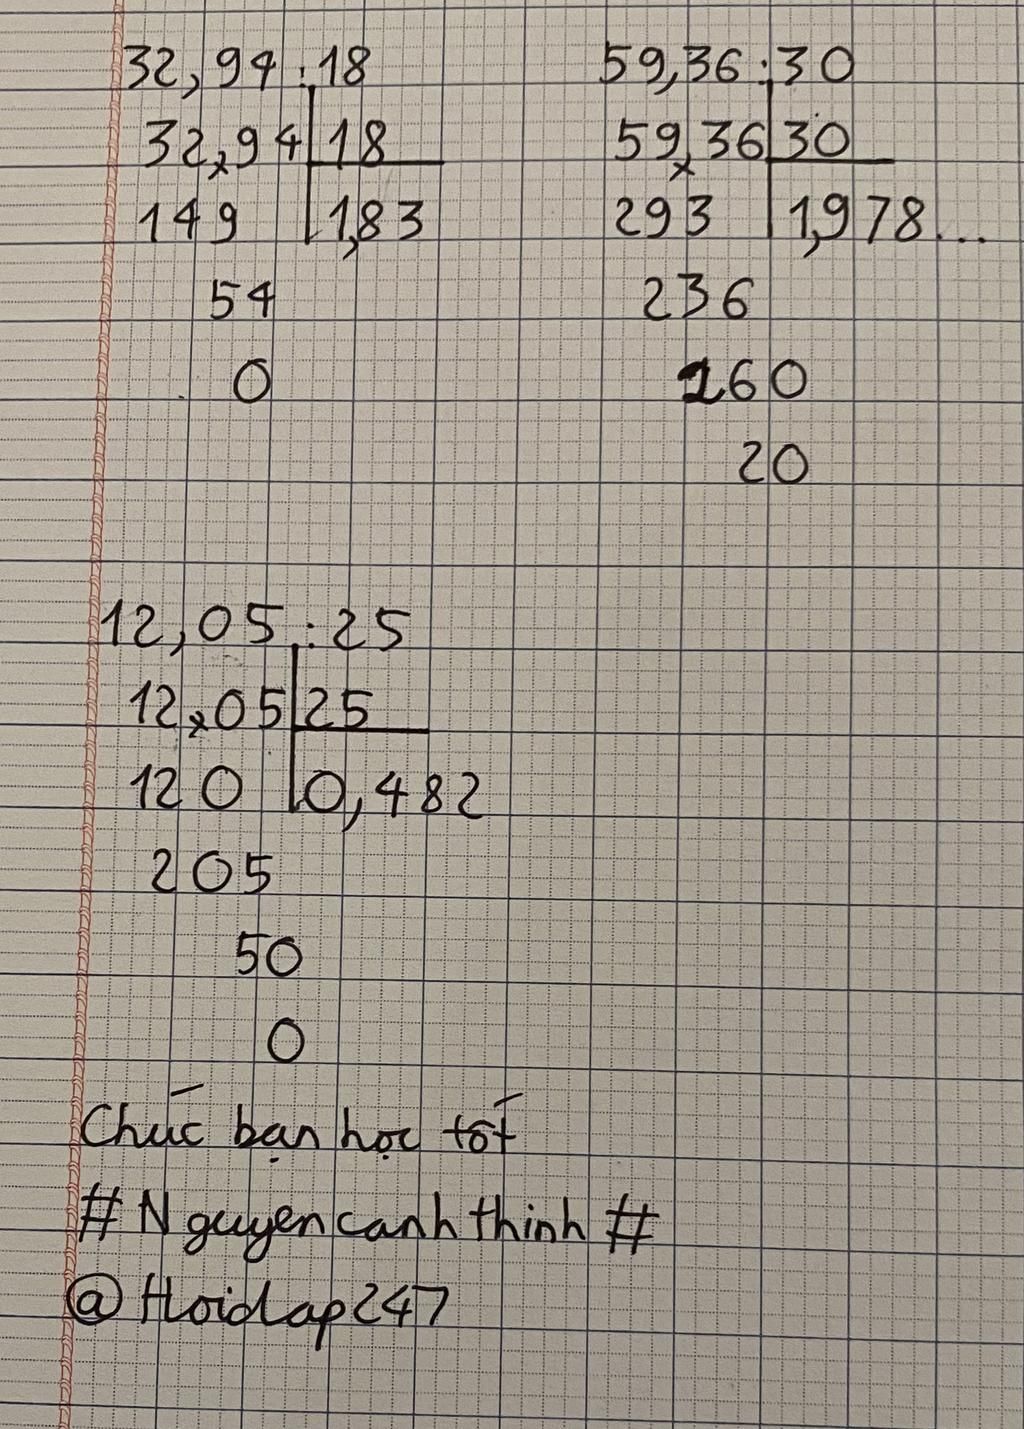 32,94 : 18
32,94 18
149 1,83
54
0
59,36 : 30
59,36 30
293 1,978...
236
260
20
12,05 : 25
12,05 25
120 0,482
205
50
0
Chúc bạn học tốt
# Nguyencanhthinh #
@ Hoidap247